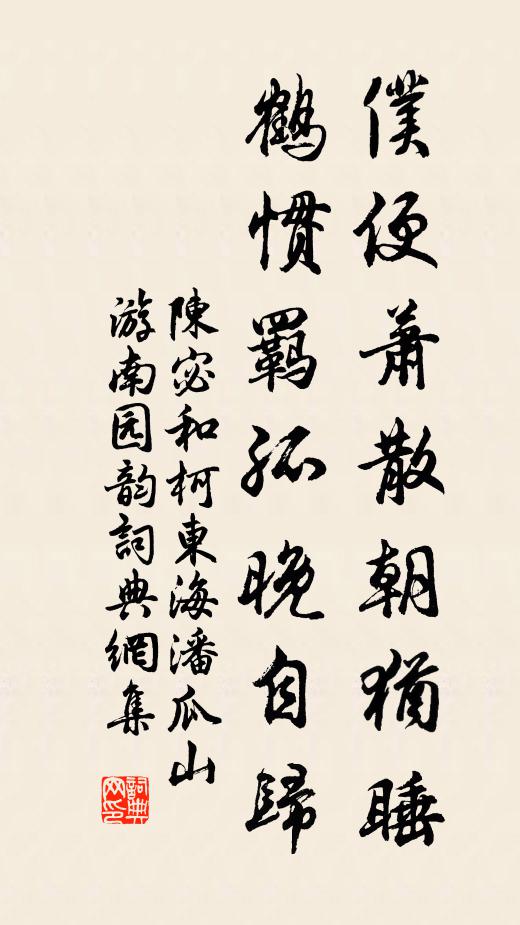 僕便蕭散朝猶睡
鶴慣羈孤晚自歸
陳宓和柯東海潘瓜山
游南园韵詞典網集
詞典網印